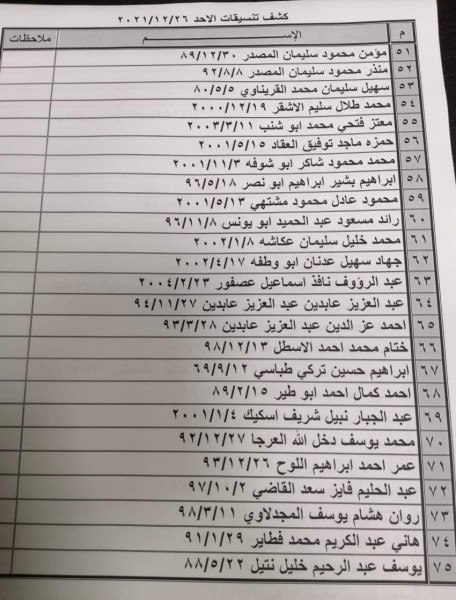 كشف تنسيقات الاحد ٢٠٢١/١٢/٢٦
م الإســـــم ملاحظات
٥١ مؤمن محمود سليمان المصدر ٨٩/١٢/٣٠
٥٢ منذر محمود سليمان المصدر ٩٢/٨/٨
٥٣ سهيل سليمان محمد القريناوي ٨٠/٥/٥
٥٤ محمد طلال سليم الاشقر ٢٠٠٠/١٢/١٩
٥٥ معتز فتحي محمد ابو شنب ٢٠٠٣/٣/١١
٥٦ حمزه ماجد توفيق العقاد ٢٠٠١/٥/١٥
٥٧ محمد محمود شاكر ابو شوفه ٢٠٠١/١١/٣
٥٨ ابراهيم بشير ابراهيم ابو نصر ٩٦/٥/١٨
٥٩ محمود عادل محمود مشتهي ٢٠٠١/٥/١٣
٦٠ رائد مسعود عبد الحميد ابو يونس ٩٦/١١/٨
٦١ محمد خليل سليمان عكاشه ٢٠٠٢/١/٨
٦٢ جهاد سهيل عدنان ابو وطفه ٢٠٠٢/٤/١٧
٦٣ عبد الرؤوف نافذ اسماعيل عصفور ٢٠٠٤/٢/٢٣
٦٤ عبد العزيز عابدين عبد العزيز عابدين ٩٤/١١/٢٧
٦٥ احمد عز الدين عبد العزيز عابدين ٩٣/٣/٢٨
٦٦ ختام محمد احمد الاسطل ٩٨/١٢/١٣
٦٧ ابراهيم حسين تركي طباسي ٦٩/٩/١٢
٦٨ احمد كمال احمد ابو طير ٨٩/٢/١٥
٦٩ عبد الجبار نبيل شريف اسكيك ٢٠٠١/١/٤
٧٠ محمد يوسف دخل الله العرجا ٩٢/١٢/٢٧
٧١ عمر احمد ابراهيم اللوح ٩٣/١٢/٢٦
٧٢ عبد الحليم فايز سعد القاضي ٩٧/١٠/٢
٧٣ روان هشام يوسف المجدلاوي ٩٨/٣/١١
٧٤ هاني عبد الكريم محمد فطاير ٩١/١/٢٩
٧٥ يوسف عبد الرحيم خليل نتيل ٨٨/٥/٢٢